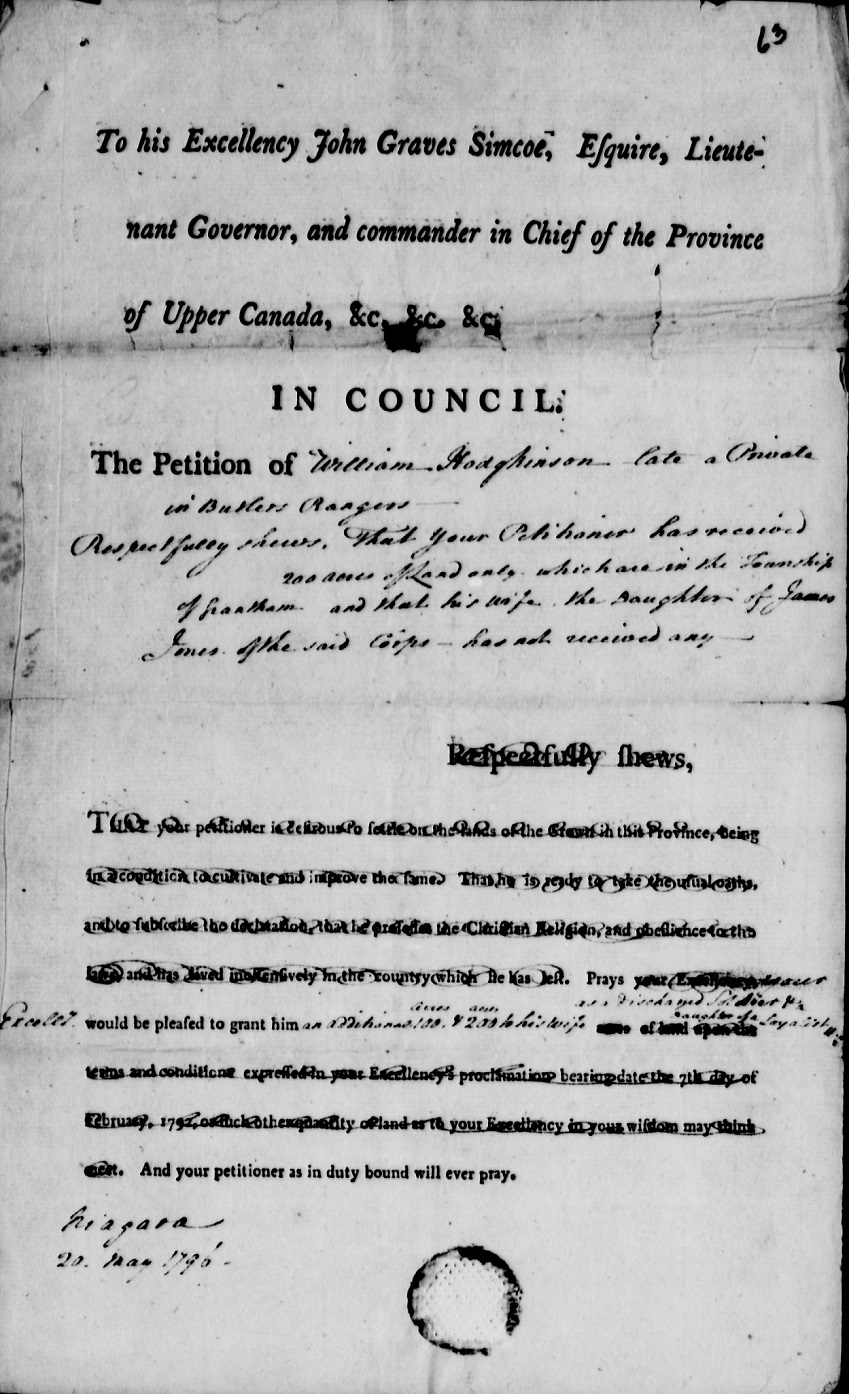 63
To his Excellency John Graves Simcoe, Eſquire, Lieute-
nant Governor, and commander in Chief of the Province
of Upper Canada, &c. &c. &c.
IN COUNCIL:
The Petition of William Hodgkinson late a Private
in Butlers Rangers
Respectfully shews, That your Petitioner has received
200 acres of Land only which are in the Township
of Grantham and that his wife the Daughter of James
Jones of the said Corps - has not received any
Reſpectfully ſhews,
THAT your petitioner is deſirous to ſettle on the lands of the Crown in this Province, being
in a condition to cultivate and improve the ſame. That he is ready to take the uſual oaths,
and to ſubſcribe the declaration, that he profeſſes the Chriſtian Religion, and obedience to the
laws, and has lived inoffenſively in the country which he has left. Prays your Excellency your
acres acres as a Discharged Soldier &
Excell. would be pleaſed to grant him an additional 100 & 200 to his wife acres of land upon the
Daughter of a Loyalist
terms and conditions expreſſed in your Excellency's proclamation bearing date the 7th day of
February, 1792, or ſuch other quantity of land as to your Excellency in your wiſdom may think
meet. And your petitioner as in duty bound will ever pray.
Niagara
20. May 1796